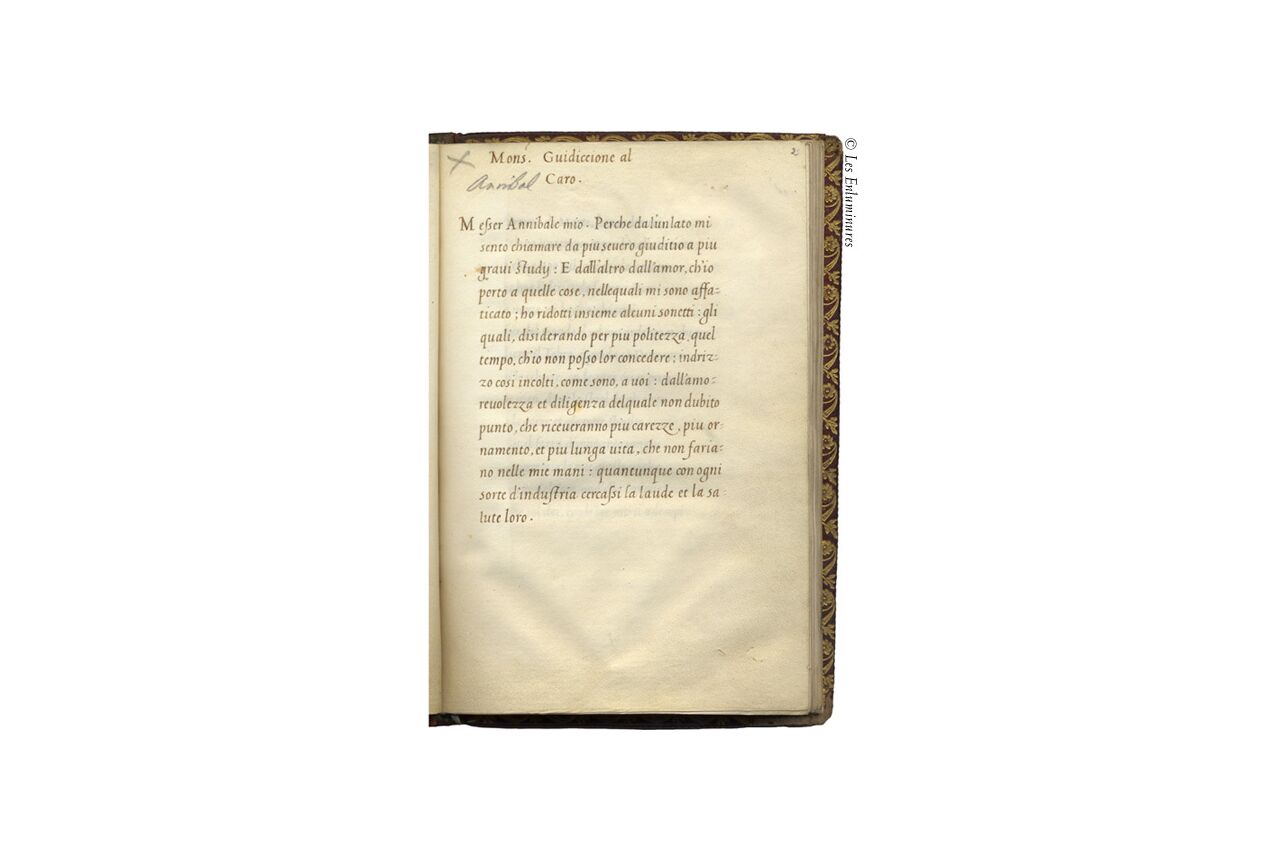 2
Mons. Guidiccione al
Annibal Caro.
Messer Annibale mio. Perche dal'un lato mi
sento chiamare da piu seuero giuditio a piu
graui study : E dall'altro dall'amor, ch'io
porto a quelle cose, nellequali mi sono affa=
ticato ; ho ridotti insieme alcuni sonetti : gli
quali, disiderando per piu politezza, quel
tempo, ch'io non posso lor concedere ; indriz=
zo cosi incolti, come sono, a uoi : dall'amo=
reuolezza et diligenza delquale non dubito
punto, che riceueranno piu carezze, piu or=
namento, et piu lunga uita, che non faria=
no nelle mie mani : quantunque con ogni
sorte d'industria cercassi la laude et la sa=
lute loro.
© Les Enluminures